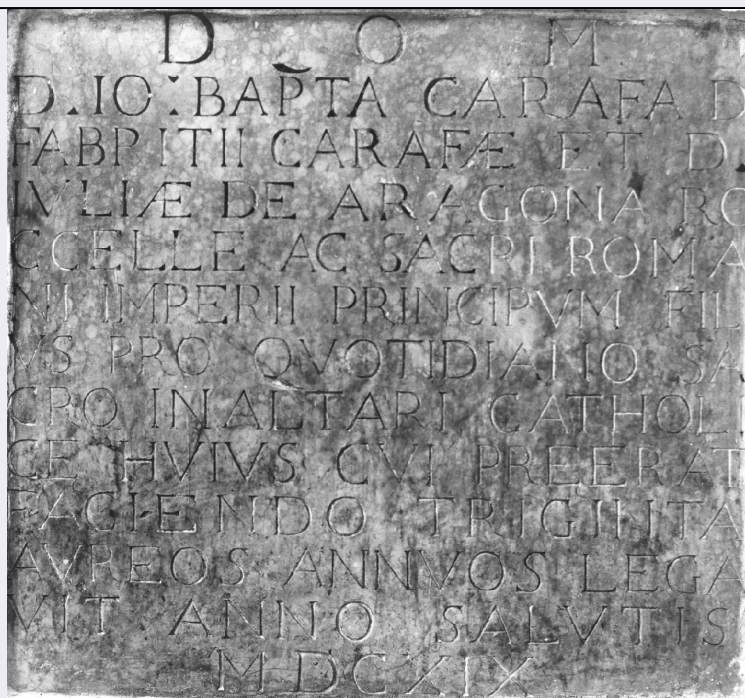 D O M
D. IO : BAPTA CARAFA D
FABRITII CARAFÆ ET D.
IVLIÆ DE ARAGONA RO
CCELLE AC SACRI ROMA
NI IMPERII PRINCIPVM FIL
VS PRO QVOTIDIANO SA
CRO IN ALTARI CATHOL
CE HVIVS CVI PREERAT
FACIENDO TRIGINTA
AVREOS ANNVOS LEGA
VIT ANNO SALVTIS
MDCXIX